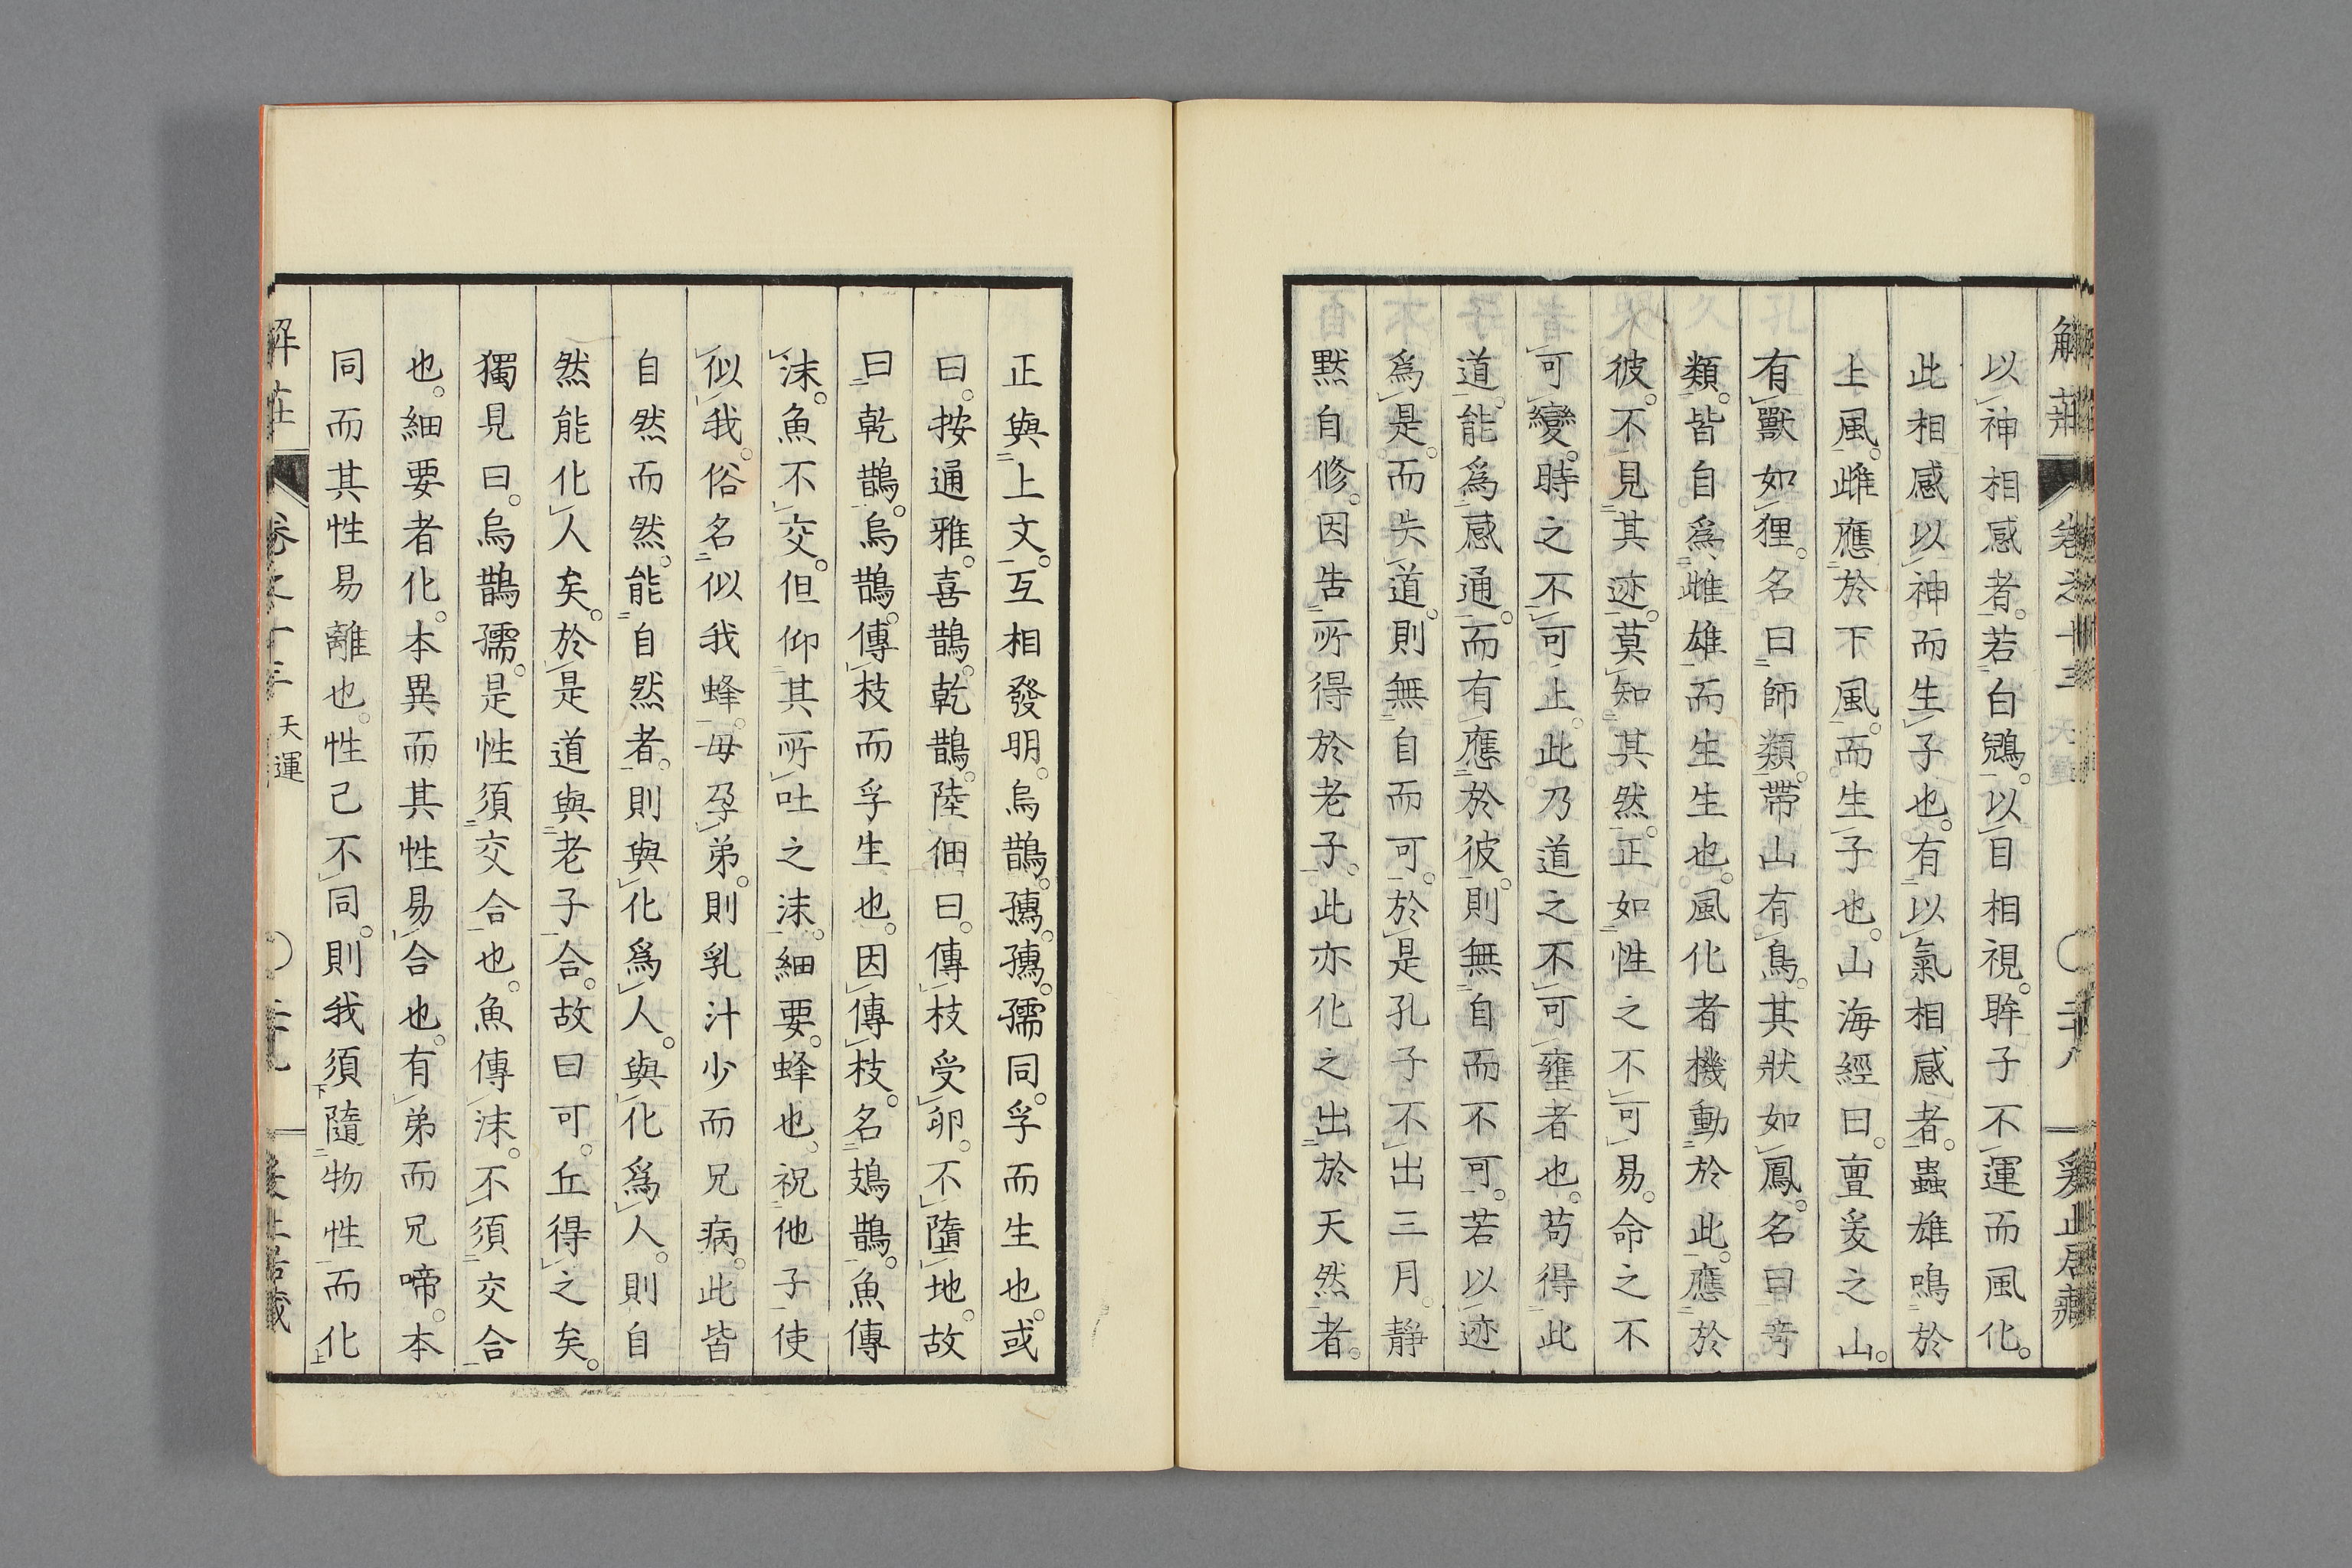 解莊 卷之十三 天運 ○二十八 爰止居藏
以神相感者。若白鶂。以目相視。眸子不運而風化。
此相感以神而生子也。有以氣相感者。蟲雄鳴於
上風。雌應於下風。而生子也。山海經曰。亶爰之山。
有獸如狸。名曰師類。帶山有鳥。其狀如鳳。名曰奇
類。皆自爲雌雄而生生也。風化者機動於此。應於
彼。不見其迹。莫知其然。正如性之不可易。命之不
可變。時之不可止。此乃道之不可壅者也。苟得此
道。能爲感通。而有應於彼。則無自而不可。若以迹
爲是。而失道。則無自而可。於是孔子不出三月。靜
默自修。因告所得於老子。此亦化之出於天然者。
正與上文。互相發明。烏鵲。孺。孺。孺同。孚而生也。或
曰。按通雅。喜鵲。乾鵲。陸佃曰。傳枝受卵。不墮地。故
曰乾鵲。烏鵲。傳枝而孚生也。因傳枝。名鳷鵲。魚傳
沫。魚不交。但仰其所吐之沫。細要。蜂也。祝他子使
似我。俗名似我蜂。毋孕弟。則乳汁少而兄病。此皆
自然而然。能自然者。則與化爲人。與化爲人。則自
然能化人矣。於是道與老子合。故曰可。丘得之矣。
獨見曰。烏鵲孺。是性須交合也。魚傳沫。不須交合
也。細要者化。本異而其性易合也。有弟而兄啼。本
同而其性易離也。性己不同。則我須隨物性而化
解莊 卷之十三 天運 ○二十九 爰止居藏